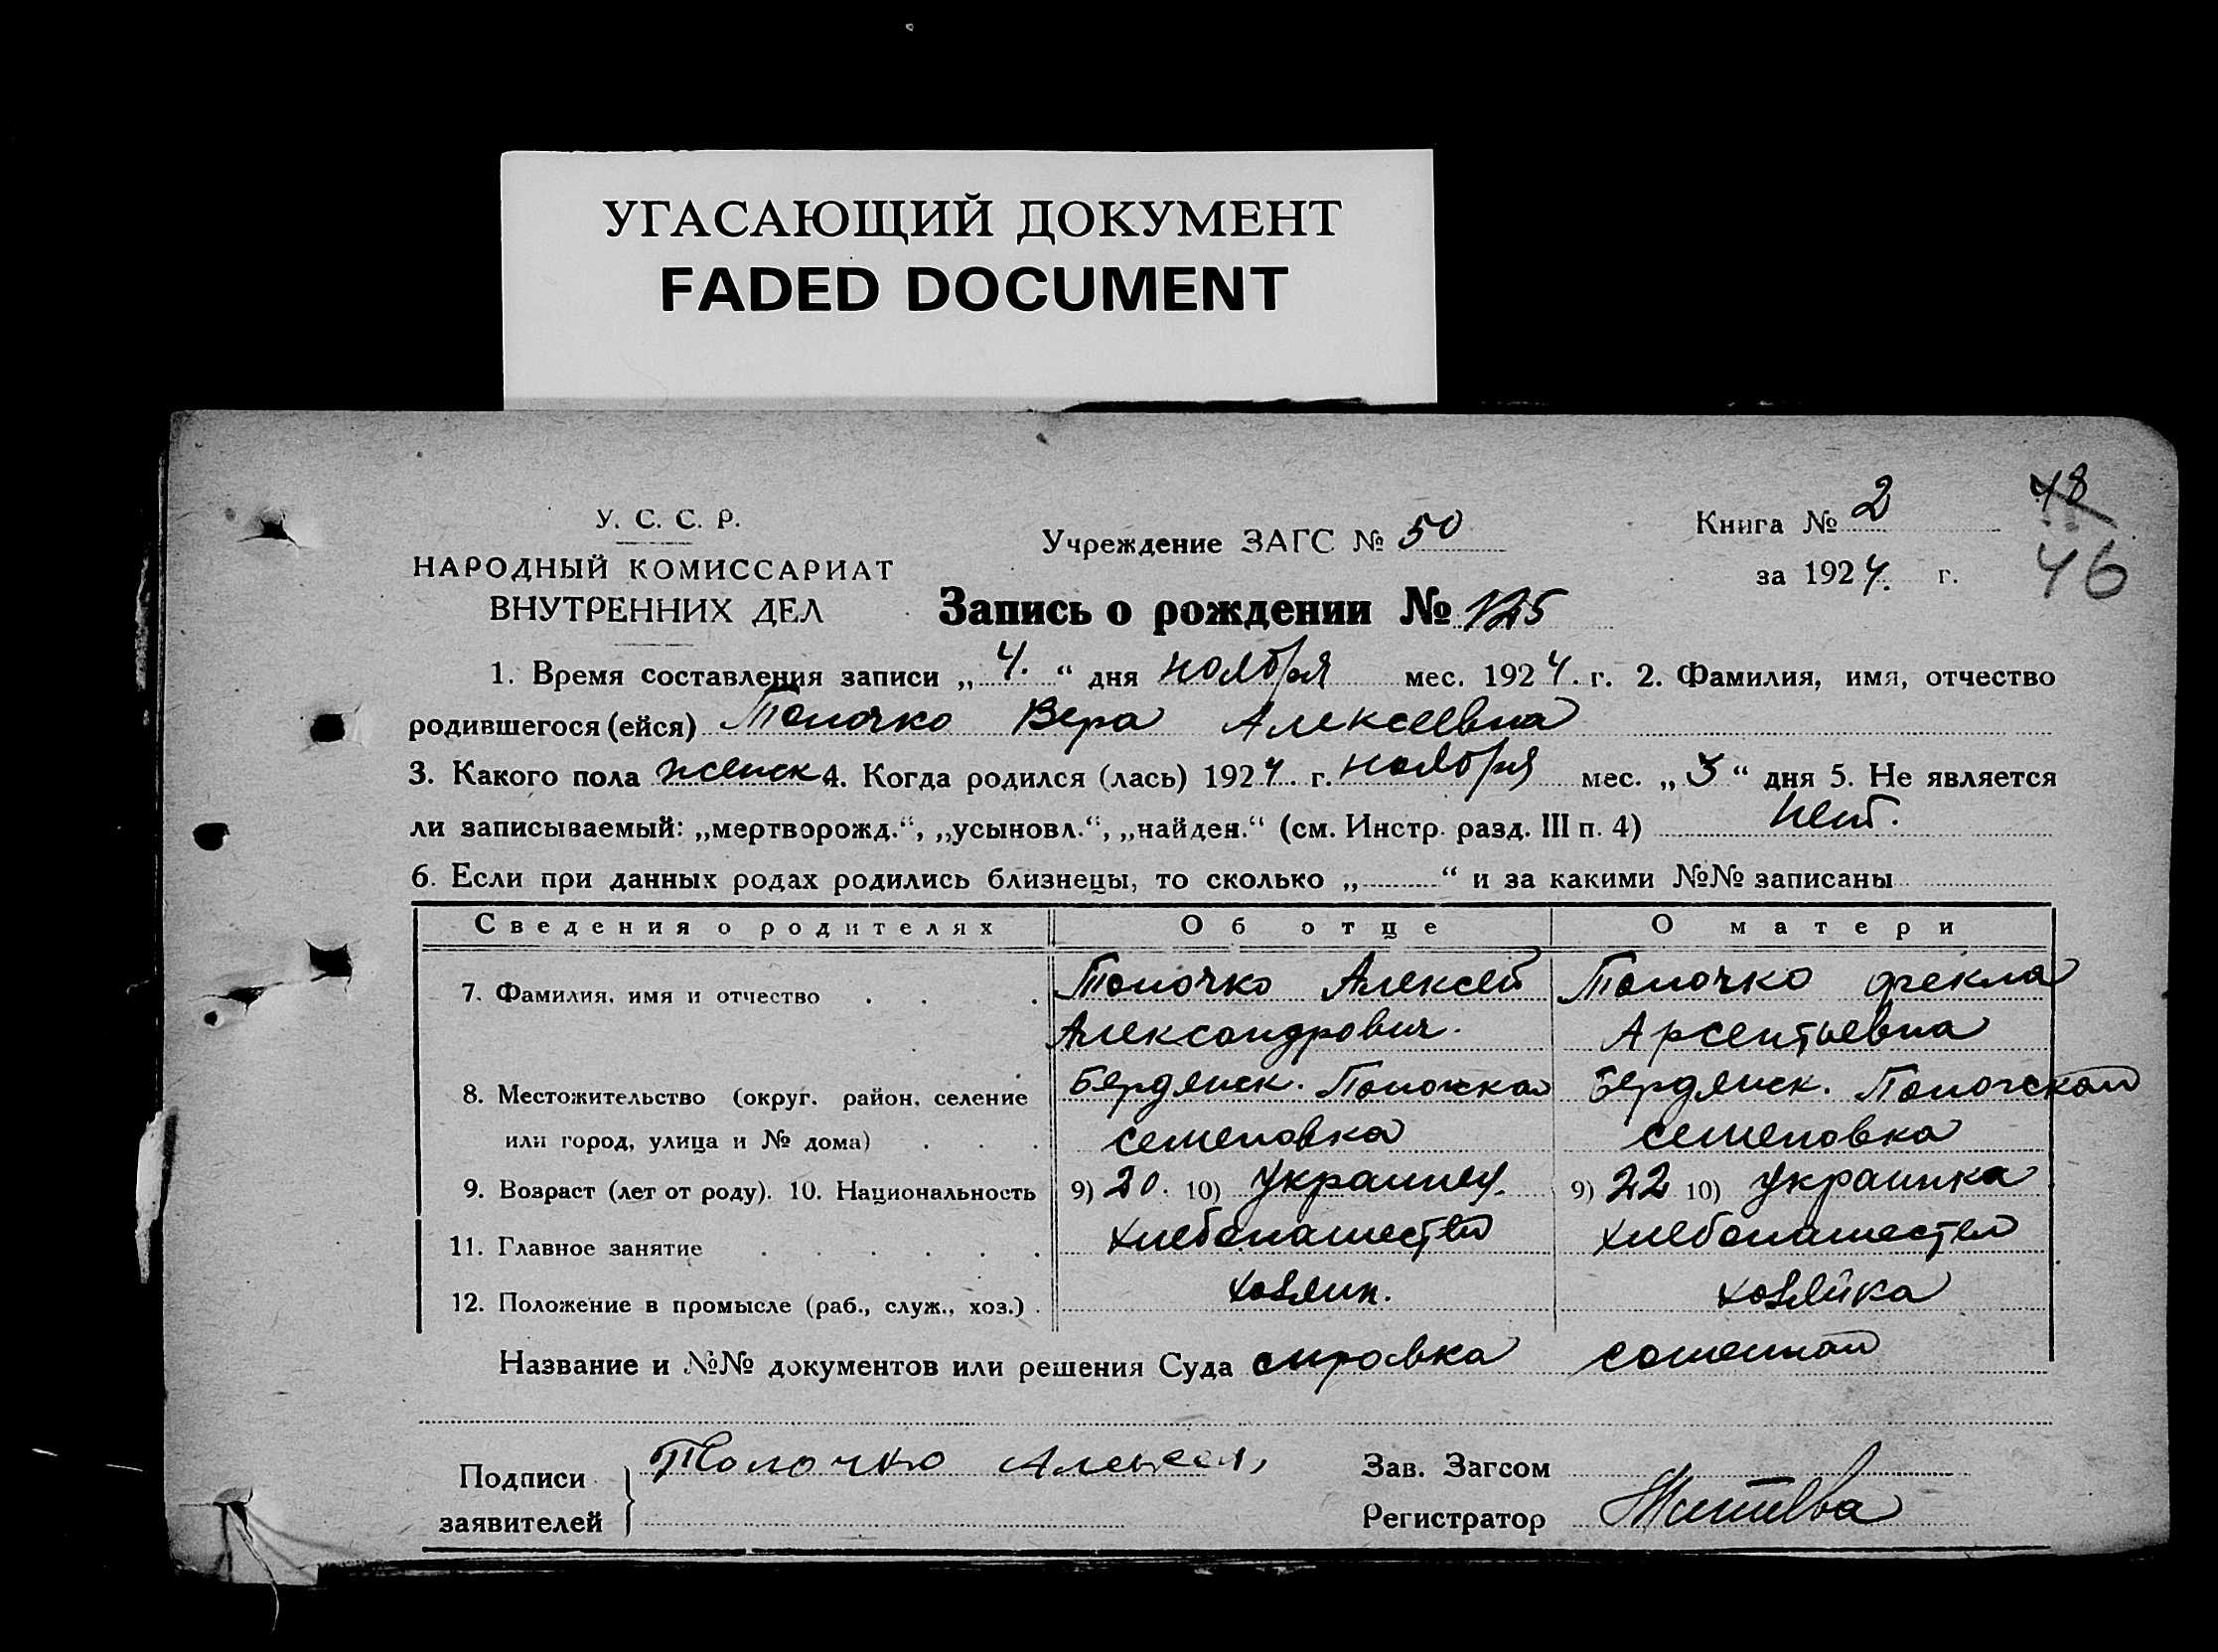 УГАСАЮЩИЙ ДОКУМЕНТ
FADED DOCUMENT
У. С. С. Р.
НАРОДНЫЙ КОМИССАРИАТ
ВНУТРЕННИХ ДЕЛ
Учреждение ЗАГС № 50
Книга № 2
48
за 1924. г.
46
Запись о рождении № 125
1. Время составления записи „4.“ дня ноября мес. 1924. г. 2. Фамилия, имя, отчество
родившегося (ейся) Толочко Вера Алексеевна
3. Какого пола женск 4. Когда родился (лась) 1924 г. ноября мес. „3“ дня 5. Не является
ли записываемый: „мертворожд.“, „усыновл.“, „найден.“ (см. Инстр. разд. III п. 4) нет.
6. Если при данных родах родились близнецы, то сколько „..........“ и за какими №№ записаны
Сведения о родителях Об отце О матери
7. Фамилия, имя и отчество Толочко Алексей Толочко Фекла
Александрович. Арсентьевна
8. Местожительство (округ. район, селение Бердянск. Бердянск.
или город, улица и № дома) семеновка семеновка
9. Возраст (лет от роду). 10. Национальность 9) 20. 10) Украинец. 9) 22 10) Украинка
11. Главное занятие хлебопашество хлебопашество
12. Положение в промысле (раб., служ., хоз.) хозяин. хозяйка
Название и №№ документов или решения Суда справка
Подписи заявителей Толочко Алексей,
Зав. Загсом
Регистратор